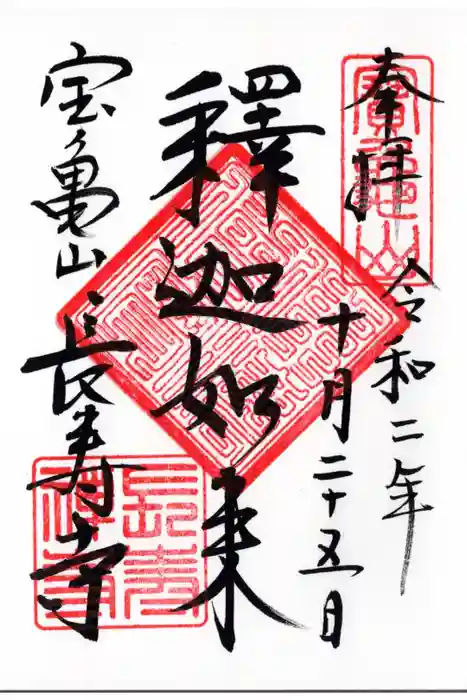 奉拝
寳龜山
令和二年
十月二十五日
釋迦如来
宝亀山長寿寺